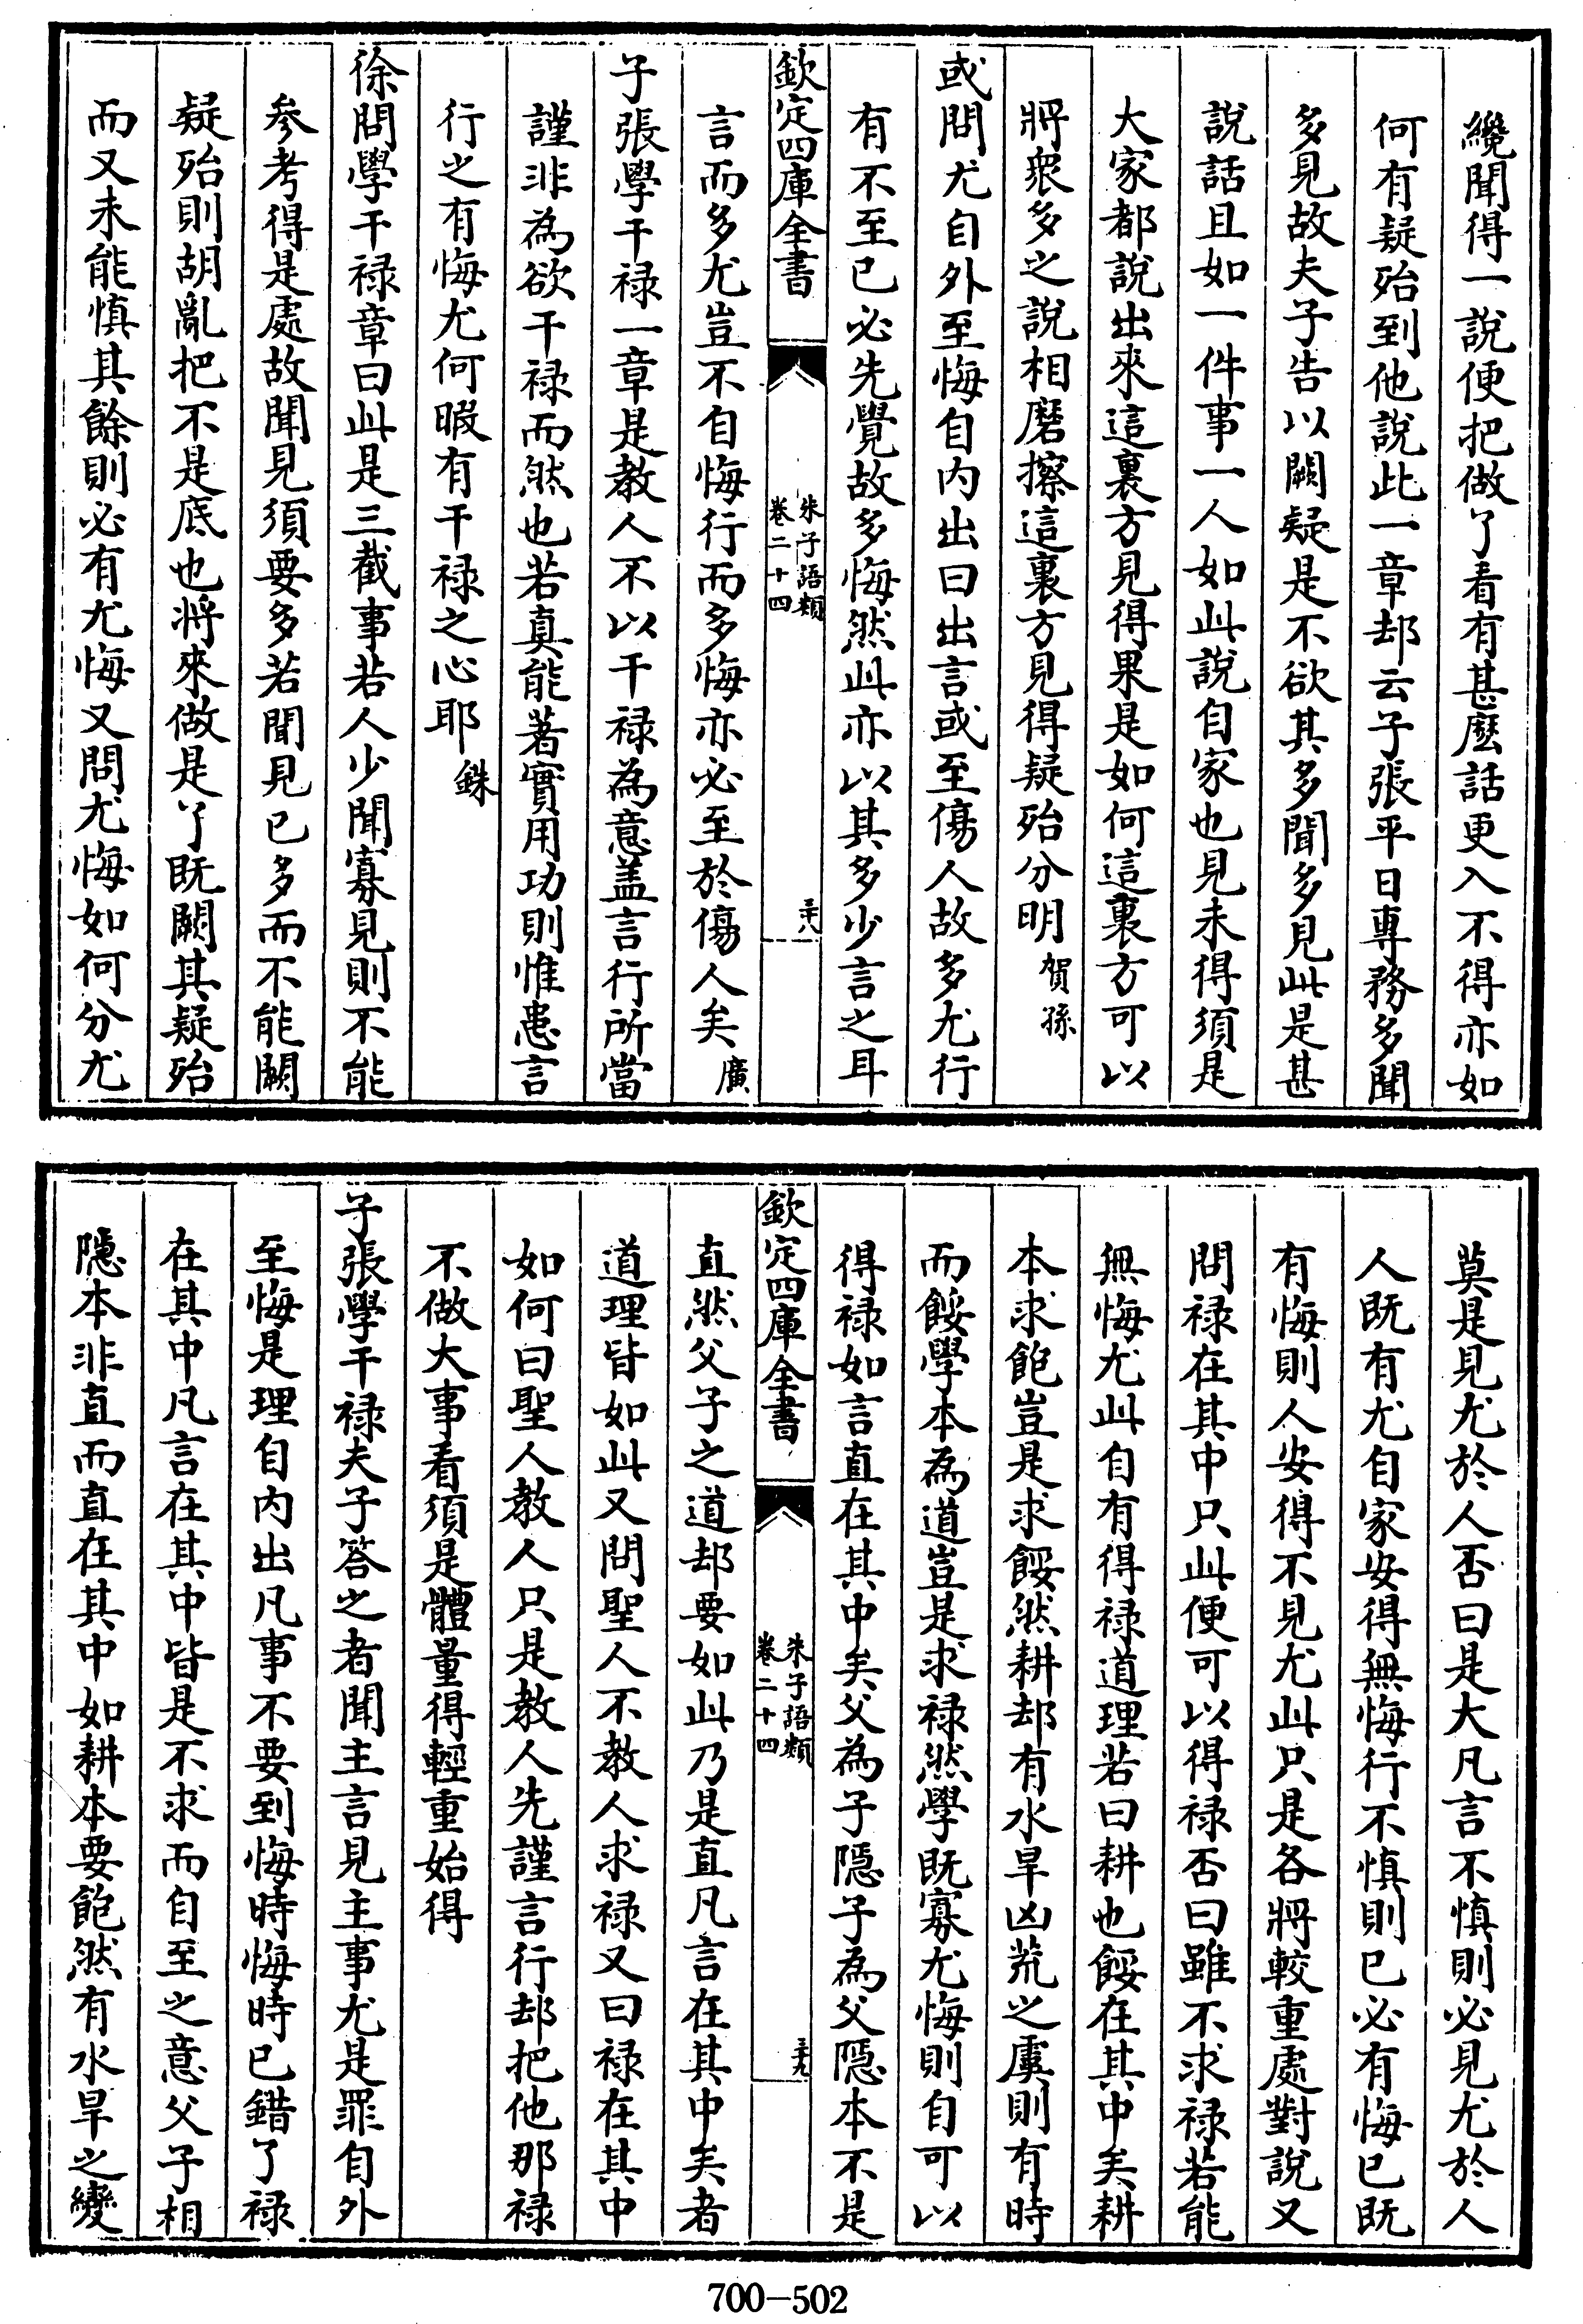 纔聞得一說便把做了看有甚麽話更入不得亦如
何有疑殆到他說此一章却云子張平日專務多聞
多見故夫子告以闕疑是不欲其多聞多見此是甚
說話且如一件事一人如此說自家也見未得須是
大家都說出來這裏方見得果是如何這裏方可以
將衆多之說相磨擦這裏方見得疑殆分明賀孫
或問尤自外至悔自内出曰出言或至傷人故多尤行
有不至已必先覺故多悔然此亦以其多少言之耳
欽定四庫全書
朱子語類
卷二十四
三十八
言而多尤豈不自悔行而多悔亦必至於傷人矣廣
子張學干禄一章是教人不以干禄為意盖言行所當
謹非為欲干禄而然也若真能著實用功則惟患言
行之有悔尤何暇有干禄之心耶銖
徐問學干禄章曰此是三截事若人少聞寡見則不能
參考得是處故聞見須要多若聞見已多而不能闕
疑殆則胡亂把不是底也將來做是了既闕其疑殆
而又未能慎其餘則必有尤悔又問尤悔如何分尤
莫是見尤於人否曰是大凡言不慎則必見尤於人
人既有尤自家安得無悔行不慎則已必有悔已既
有悔則人安得不見尤此只是各將較重處對說又
問禄在其中只此便可以得禄否曰雖不求禄若能
無悔尤此自有得禄道理若曰耕也餒在其中矣耕
本求飽豈是求餒然耕却有水旱凶荒之虞則有時
而餒學本為道豈是求禄然學既寡尤悔則自可以
得禄如言直在其中矣父為子隱子為父隱本不是
欽定四庫全書
朱子語類
卷二十四
三十九
直然父子之道却要如此乃是直凡言在其中矣者
道理皆如此又問聖人不教人求禄又曰禄在其中
如何曰聖人教人只是教人先謹言行却把他那禄
不做大事看須是體量得輕重始得
子張學干禄夫子答之者聞主言見主事尤是罪自外
至悔是理自内出凡事不要到悔時悔時已錯了禄
在其中凡言在其中皆是不求而自至之意父子相
隱本非直而直在其中如耕本要飽然有水旱之變
700-502